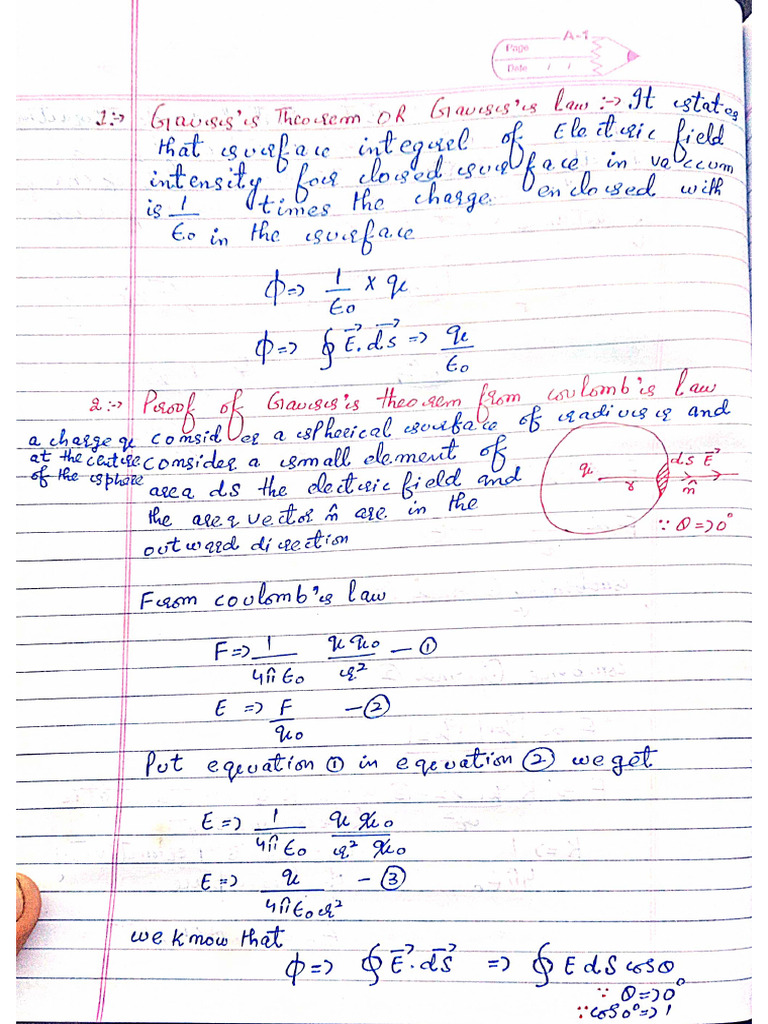 A-1
Page
Date / /
1:→ Gauss's Theorem OR Gauss's law :→ It states
that surface integral of Electric field
intensity for closed surface in vaccum
is 1/ϵ₀ times the charge enclosed with
in the surface
ϕ => 1/ϵ₀ × q
ϕ => ∮ E⃗.dS⃗ => q/ϵ₀
2:→ Proof of Gauss's theorem from coulomb's law
a charge q consider a spherical surface of radius r and
at the centre consider a small element of
of the sphere area ds the electric field and
the area vector n̂ are in the
outward direction
q r dS E⃗ n̂
∵ θ => 0°
From coulomb's law
F => 1/4πϵ₀ q q₀/r² — ①
E => F/q₀ — ②
Put equation ① in equation ② we get
E => 1/4πϵ₀ q q₀/r² q₀
E => q/4πϵ₀r² — ③
we know that
ϕ => ∮ E⃗.dS⃗ => ∮ E dS cosθ
∵ θ => 0°
∵ cos0° => 1